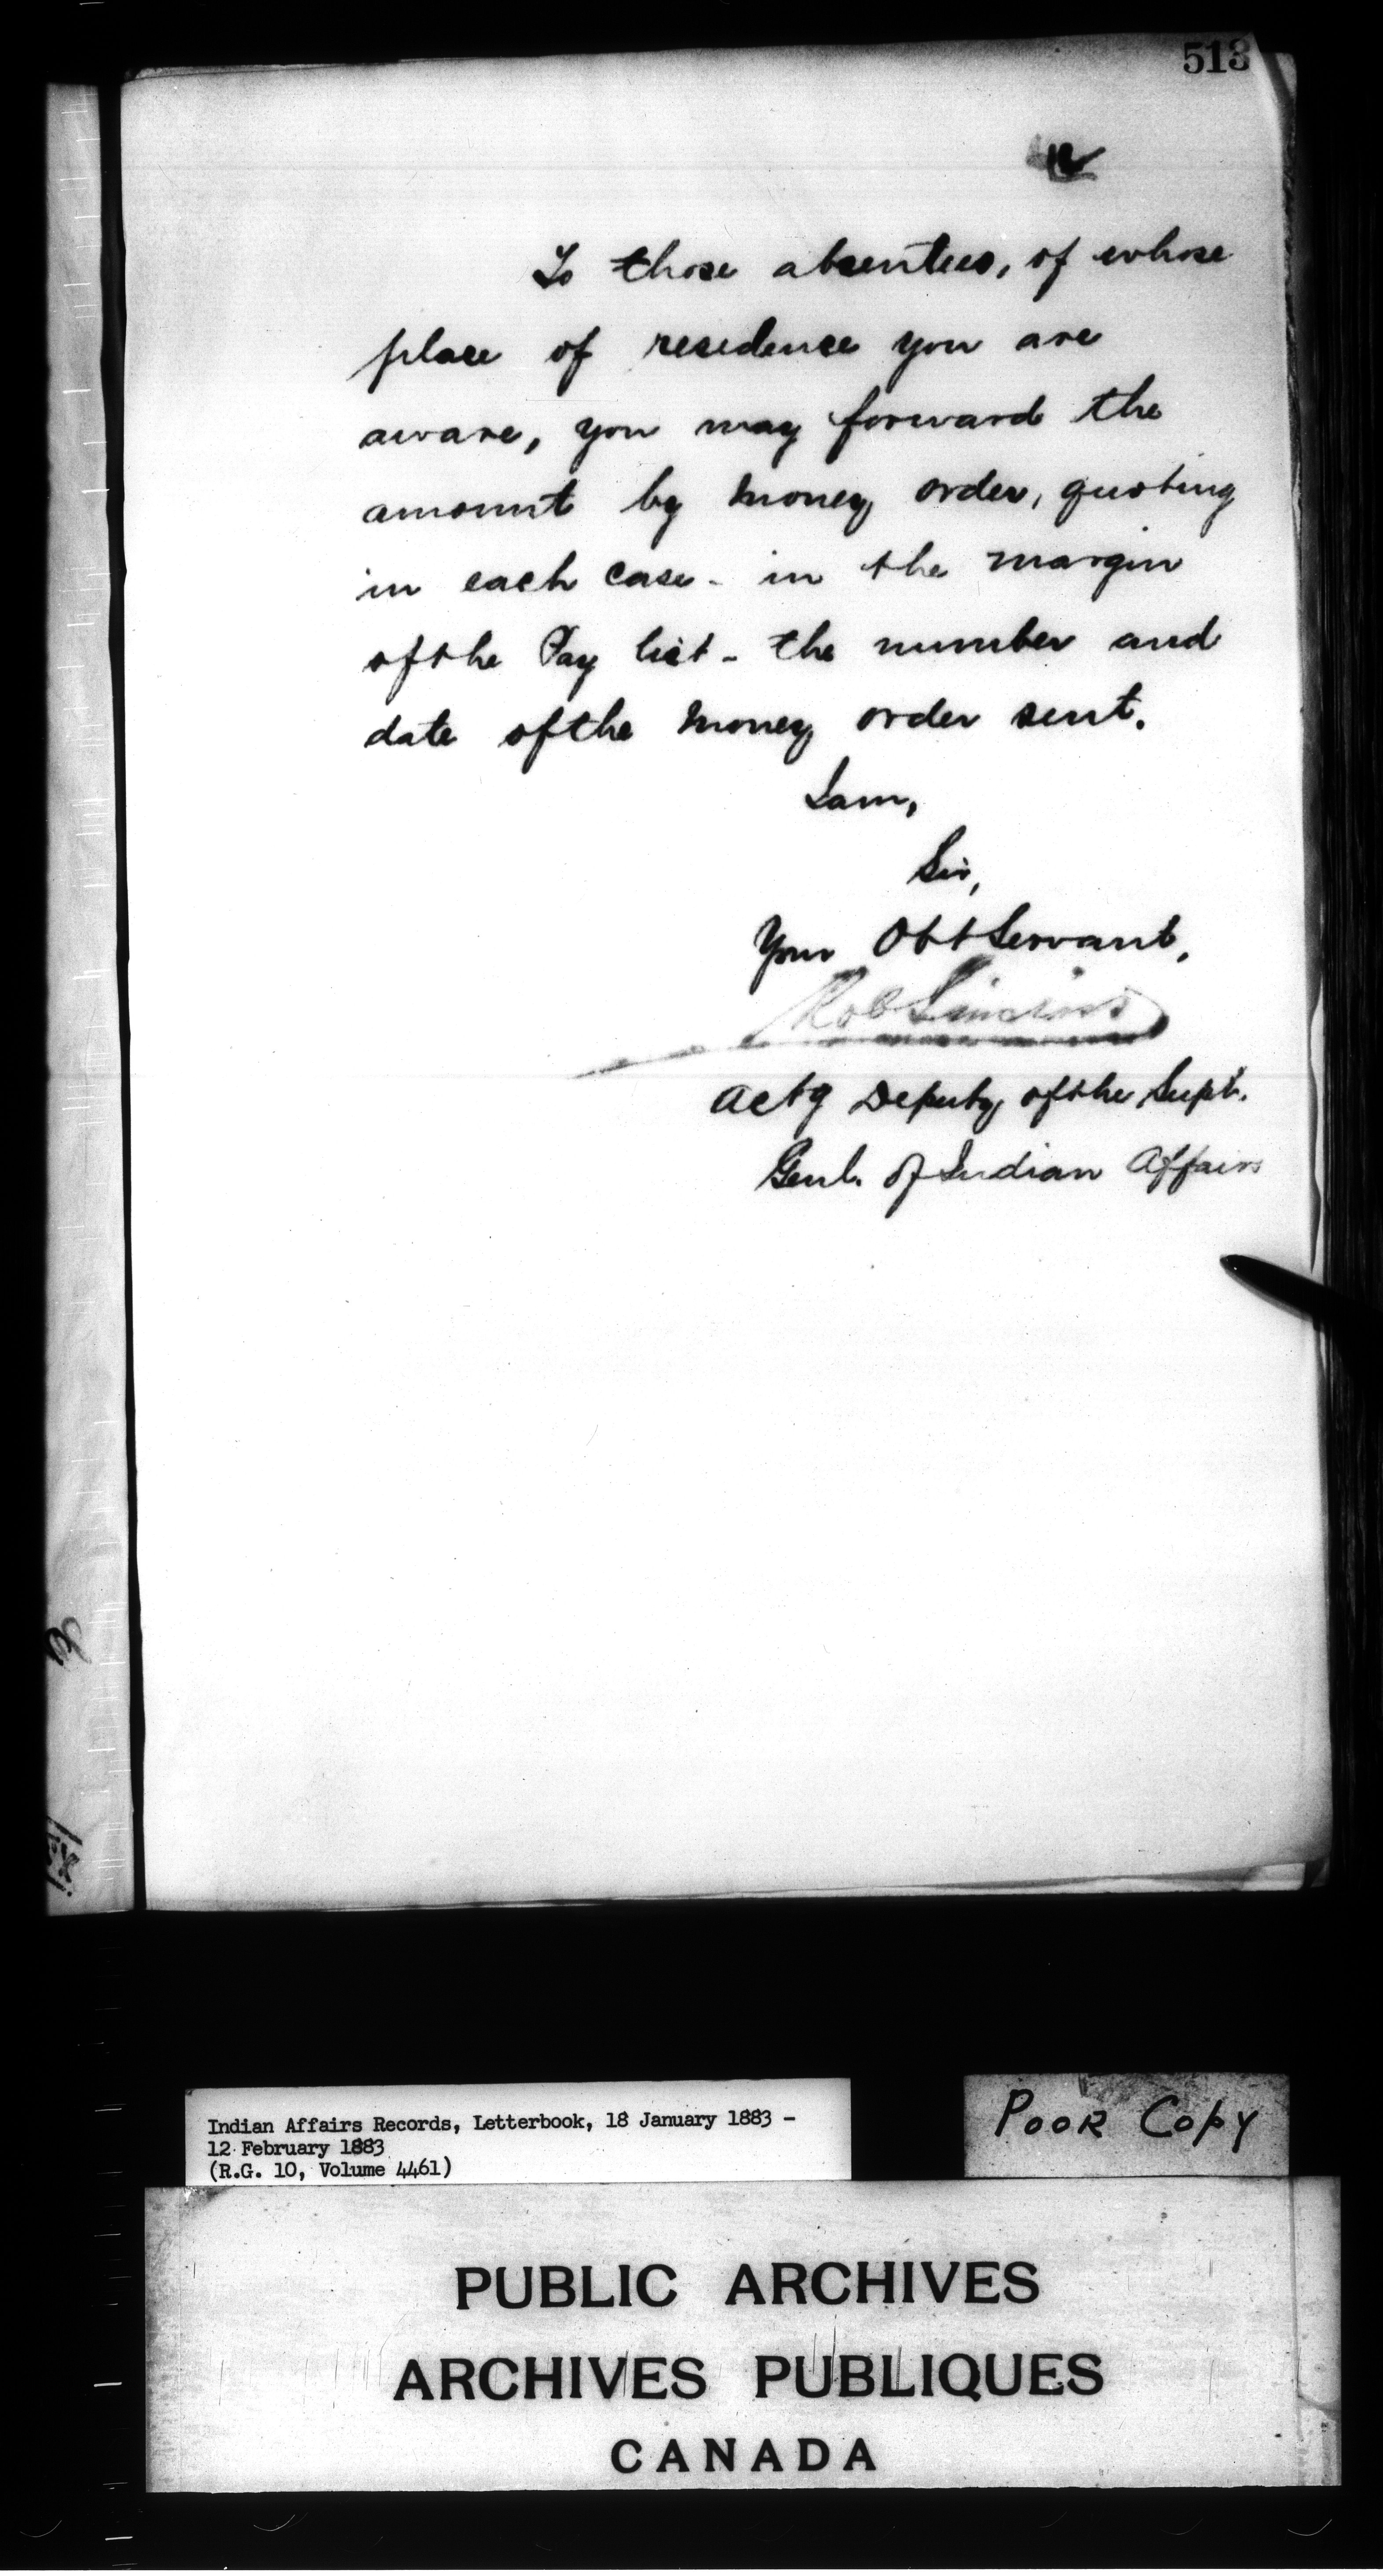 513
To those absentees, of whose
place of residence you are
aware, you may forward the
amount by money order, quoting
in each case - in the margin
of the Pay list - the number and
date of the money order sent.
I am,
Sir,
Your Obt Servant,
Rob Sinclair
Actg Deputy of the Supt.
Genl. of Indian Affairs
Indian Affairs Records, Letterbook, 18 January 1883 -
12 February 1883
(R.G. 10, Volume 4461)
POOR COPY
PUBLIC ARCHIVES
ARCHIVES PUBLIQUES
CANADA